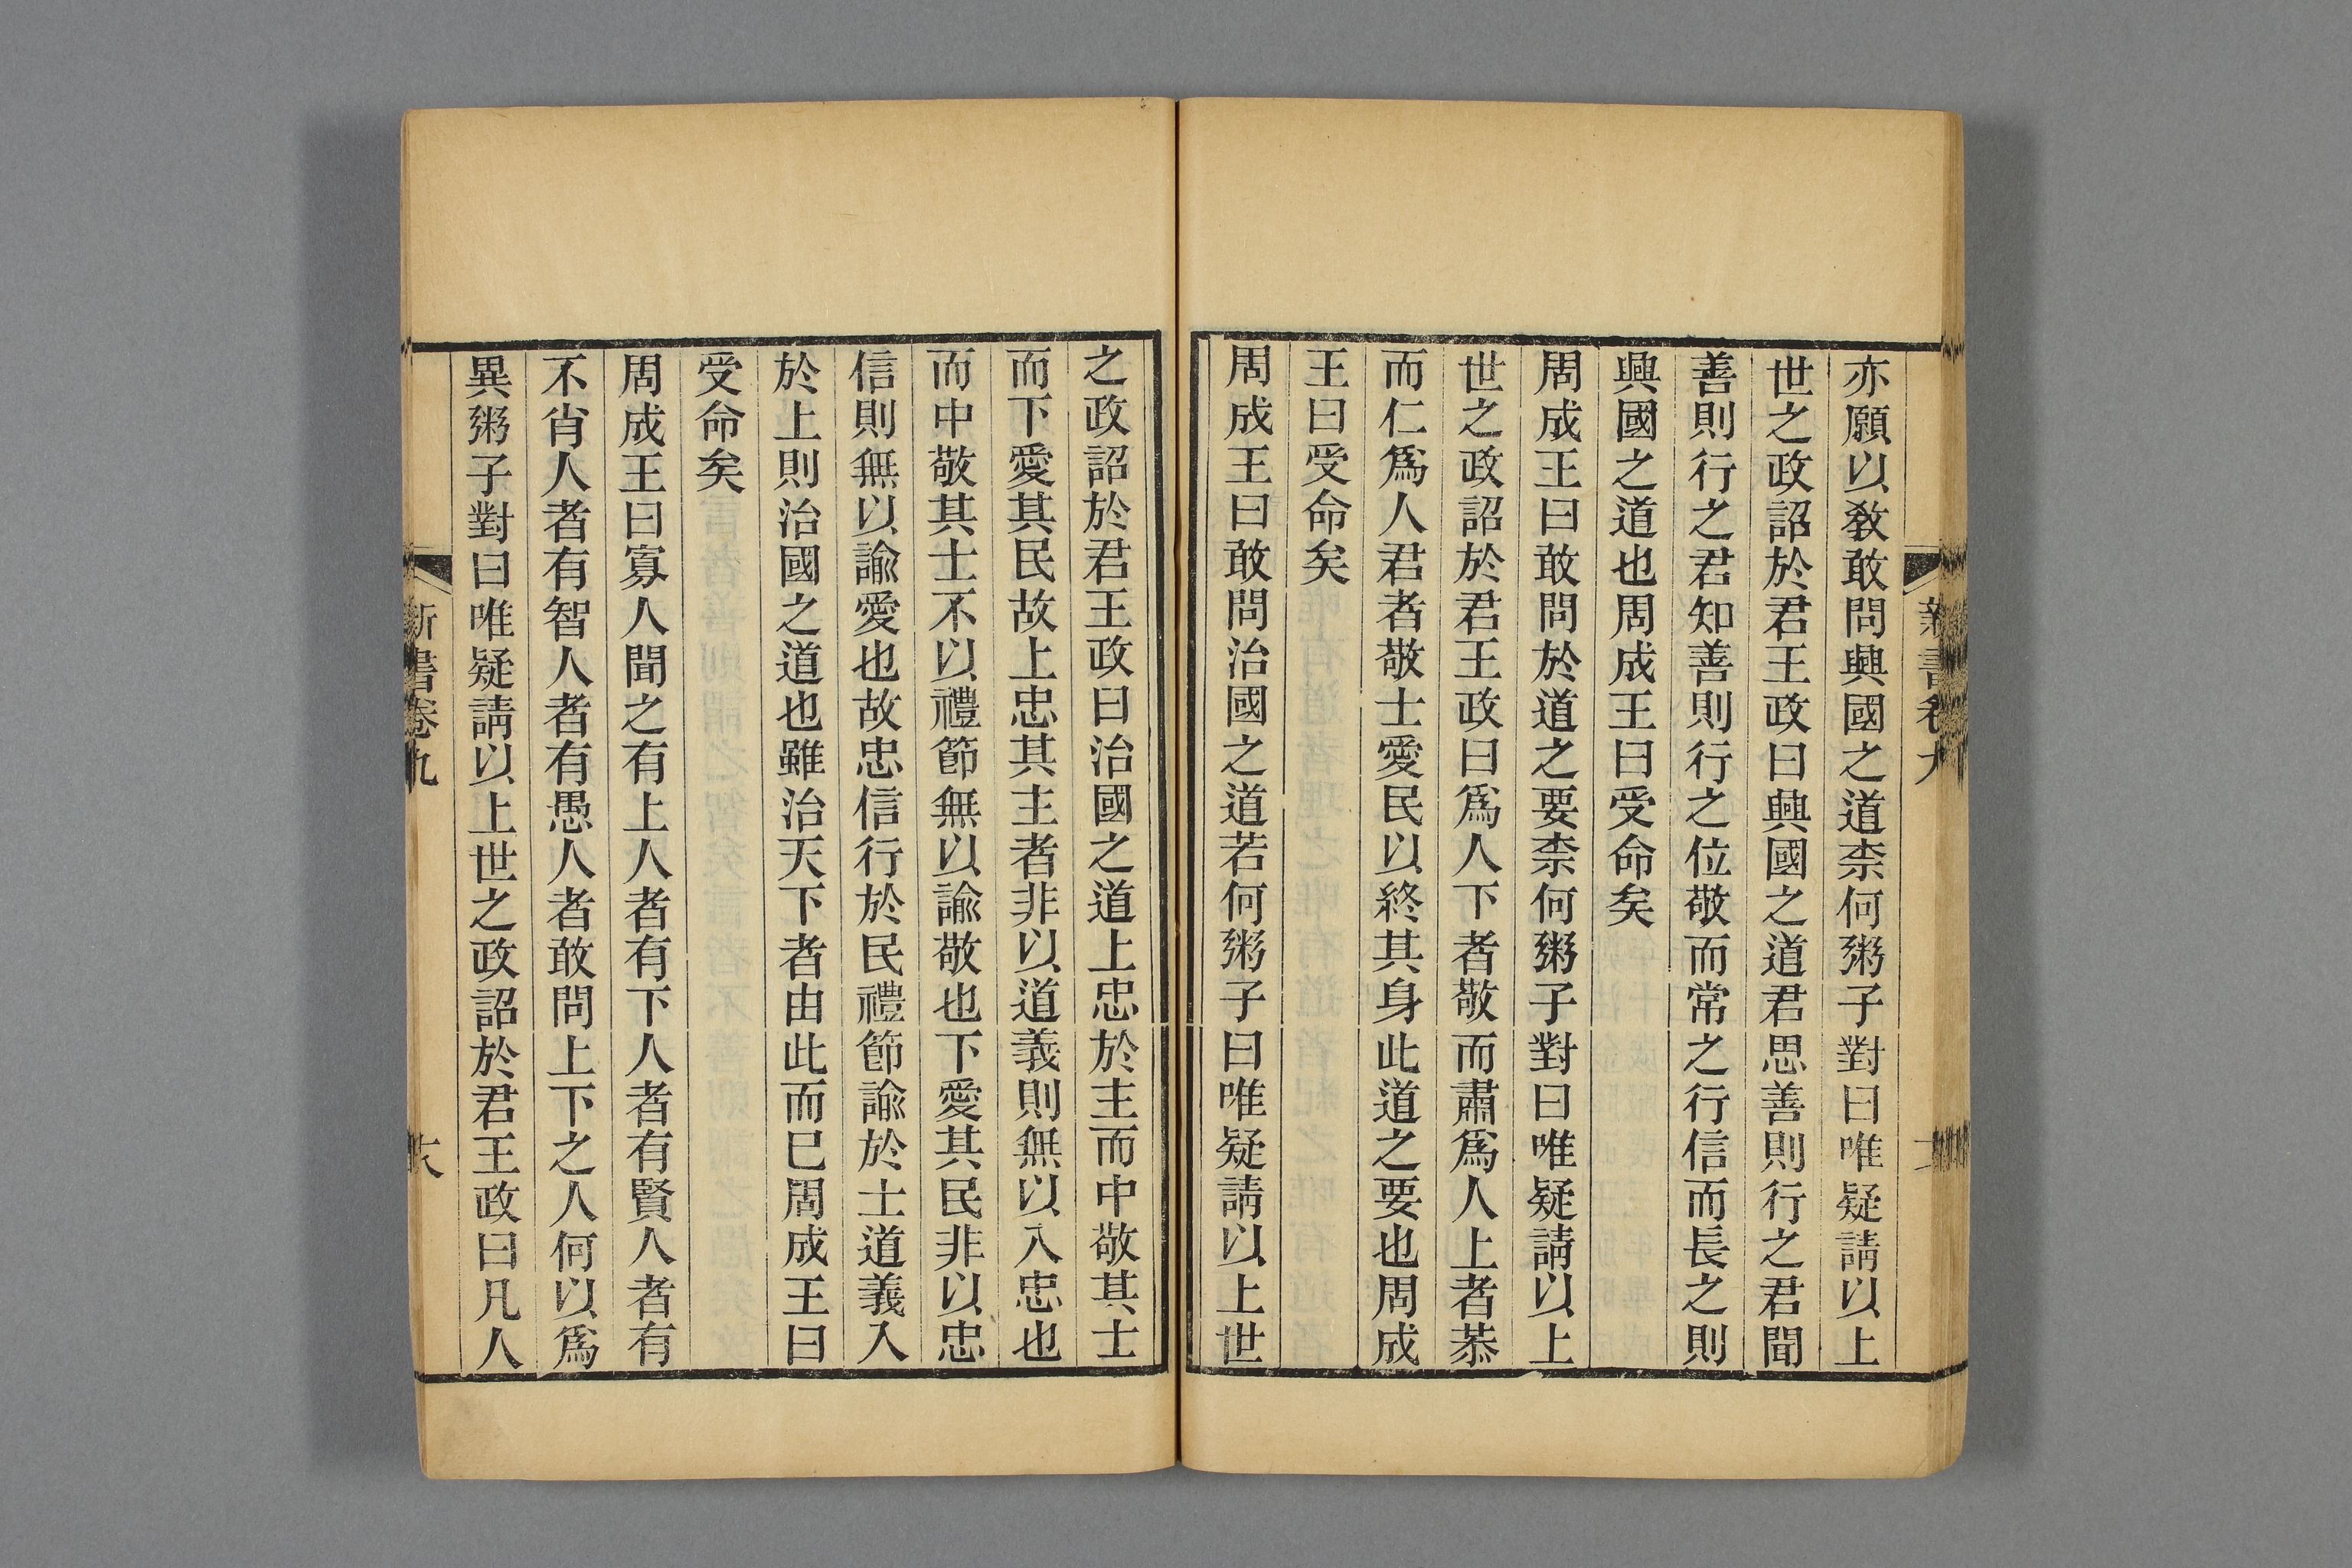 亦願以敎敢問興國之道柰何粥子對曰唯疑請以上
世之政詔於君王政曰興國之道君思善則行之君聞
善則行之君知善則行之位敬而常之行信而長之則
興國之道也周成王曰受命矣
周成王曰敢問於道之要柰何粥子對曰唯疑請以上
世之政詔於君王政曰爲人下者敬而肅爲人上者恭
而仁爲人君者敬士愛民以終其身此道之要也周成
王曰受命矣
周成王曰敢問治國之道若何粥子曰唯疑請以上世
之政詔於君王政曰治國之道上忠於主而中敬其士
而下愛其民故上忠其主者非以道義則無以入忠也
而中敬其士不以禮節無以諭敬也下愛其民非以忠
信則無以諭愛也故忠信行於民禮節諭於士道義入
於上則治國之道也雖治天下者由此而已周成王曰
受命矣
周成王曰寡人聞之有上人者有下人者有賢人者有
不肖人者有智人者有愚人者敢問上下之人何以爲
異粥子對曰唯疑請以上世之政詔於君王政曰凡人
新書卷九